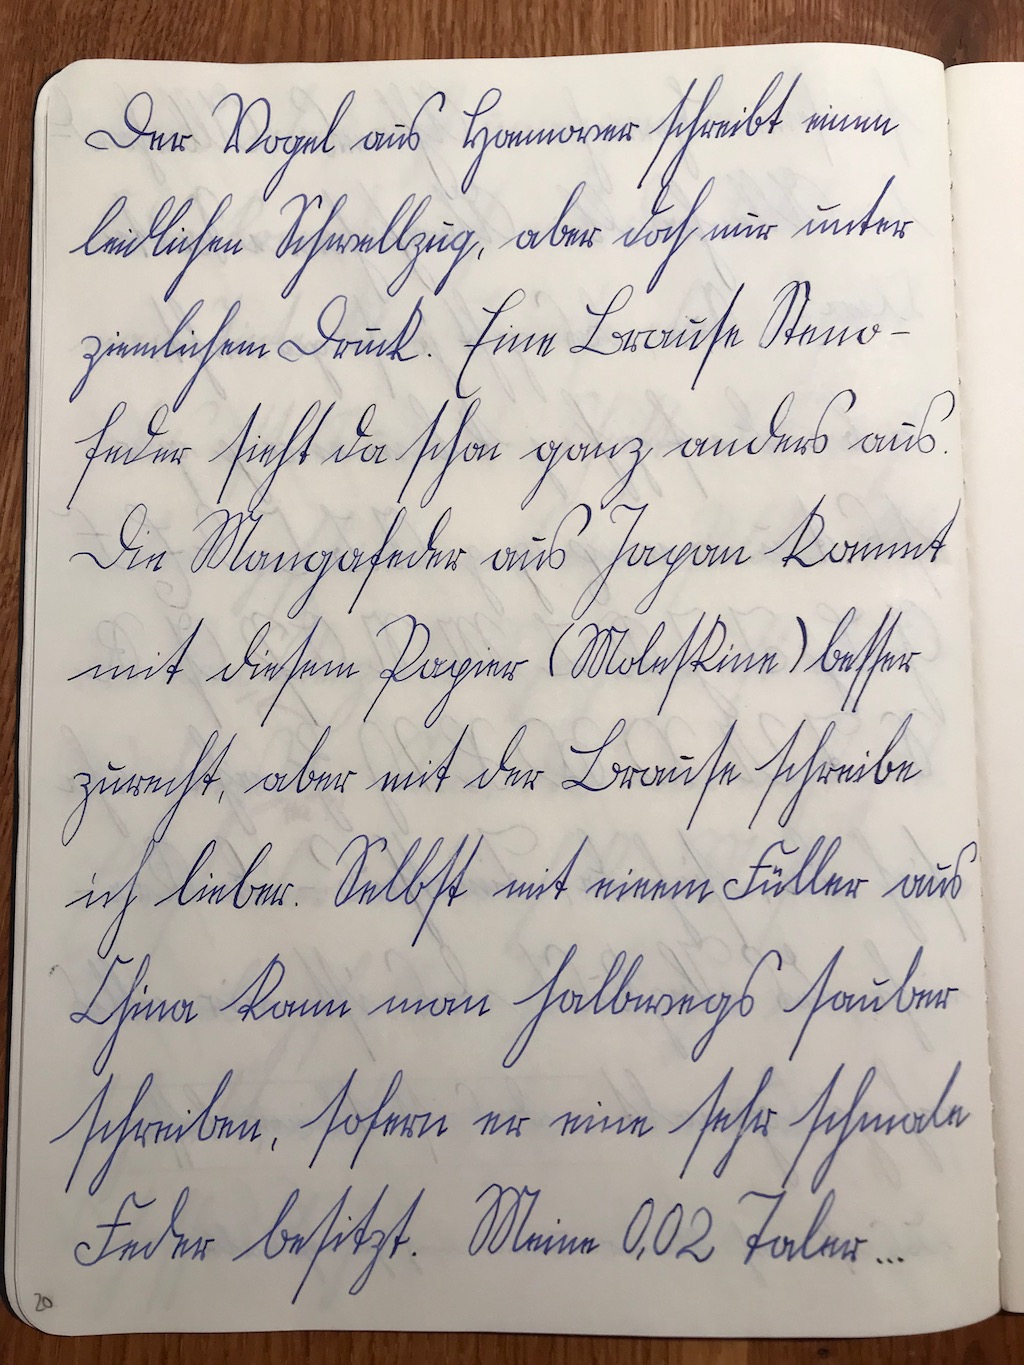 Der Vogel aus Hannover schreibt einen
leidlichen Schwellzug, aber doch nur unter
ziemlichem Druck. Eine Brause Steno-
feder sieht da schon ganz anders aus.
Die Mangafeder aus Japan kommt
mit diesem Papier (Moleskine) besser
zurecht, aber mit der Brause schreibe
ich lieber. Selbst mit einem Füller aus
China kann man halbwegs sauber
schreiben, sofern er eine sehr schmale
Feder besitzt. Meine 0,02 Taler...
20